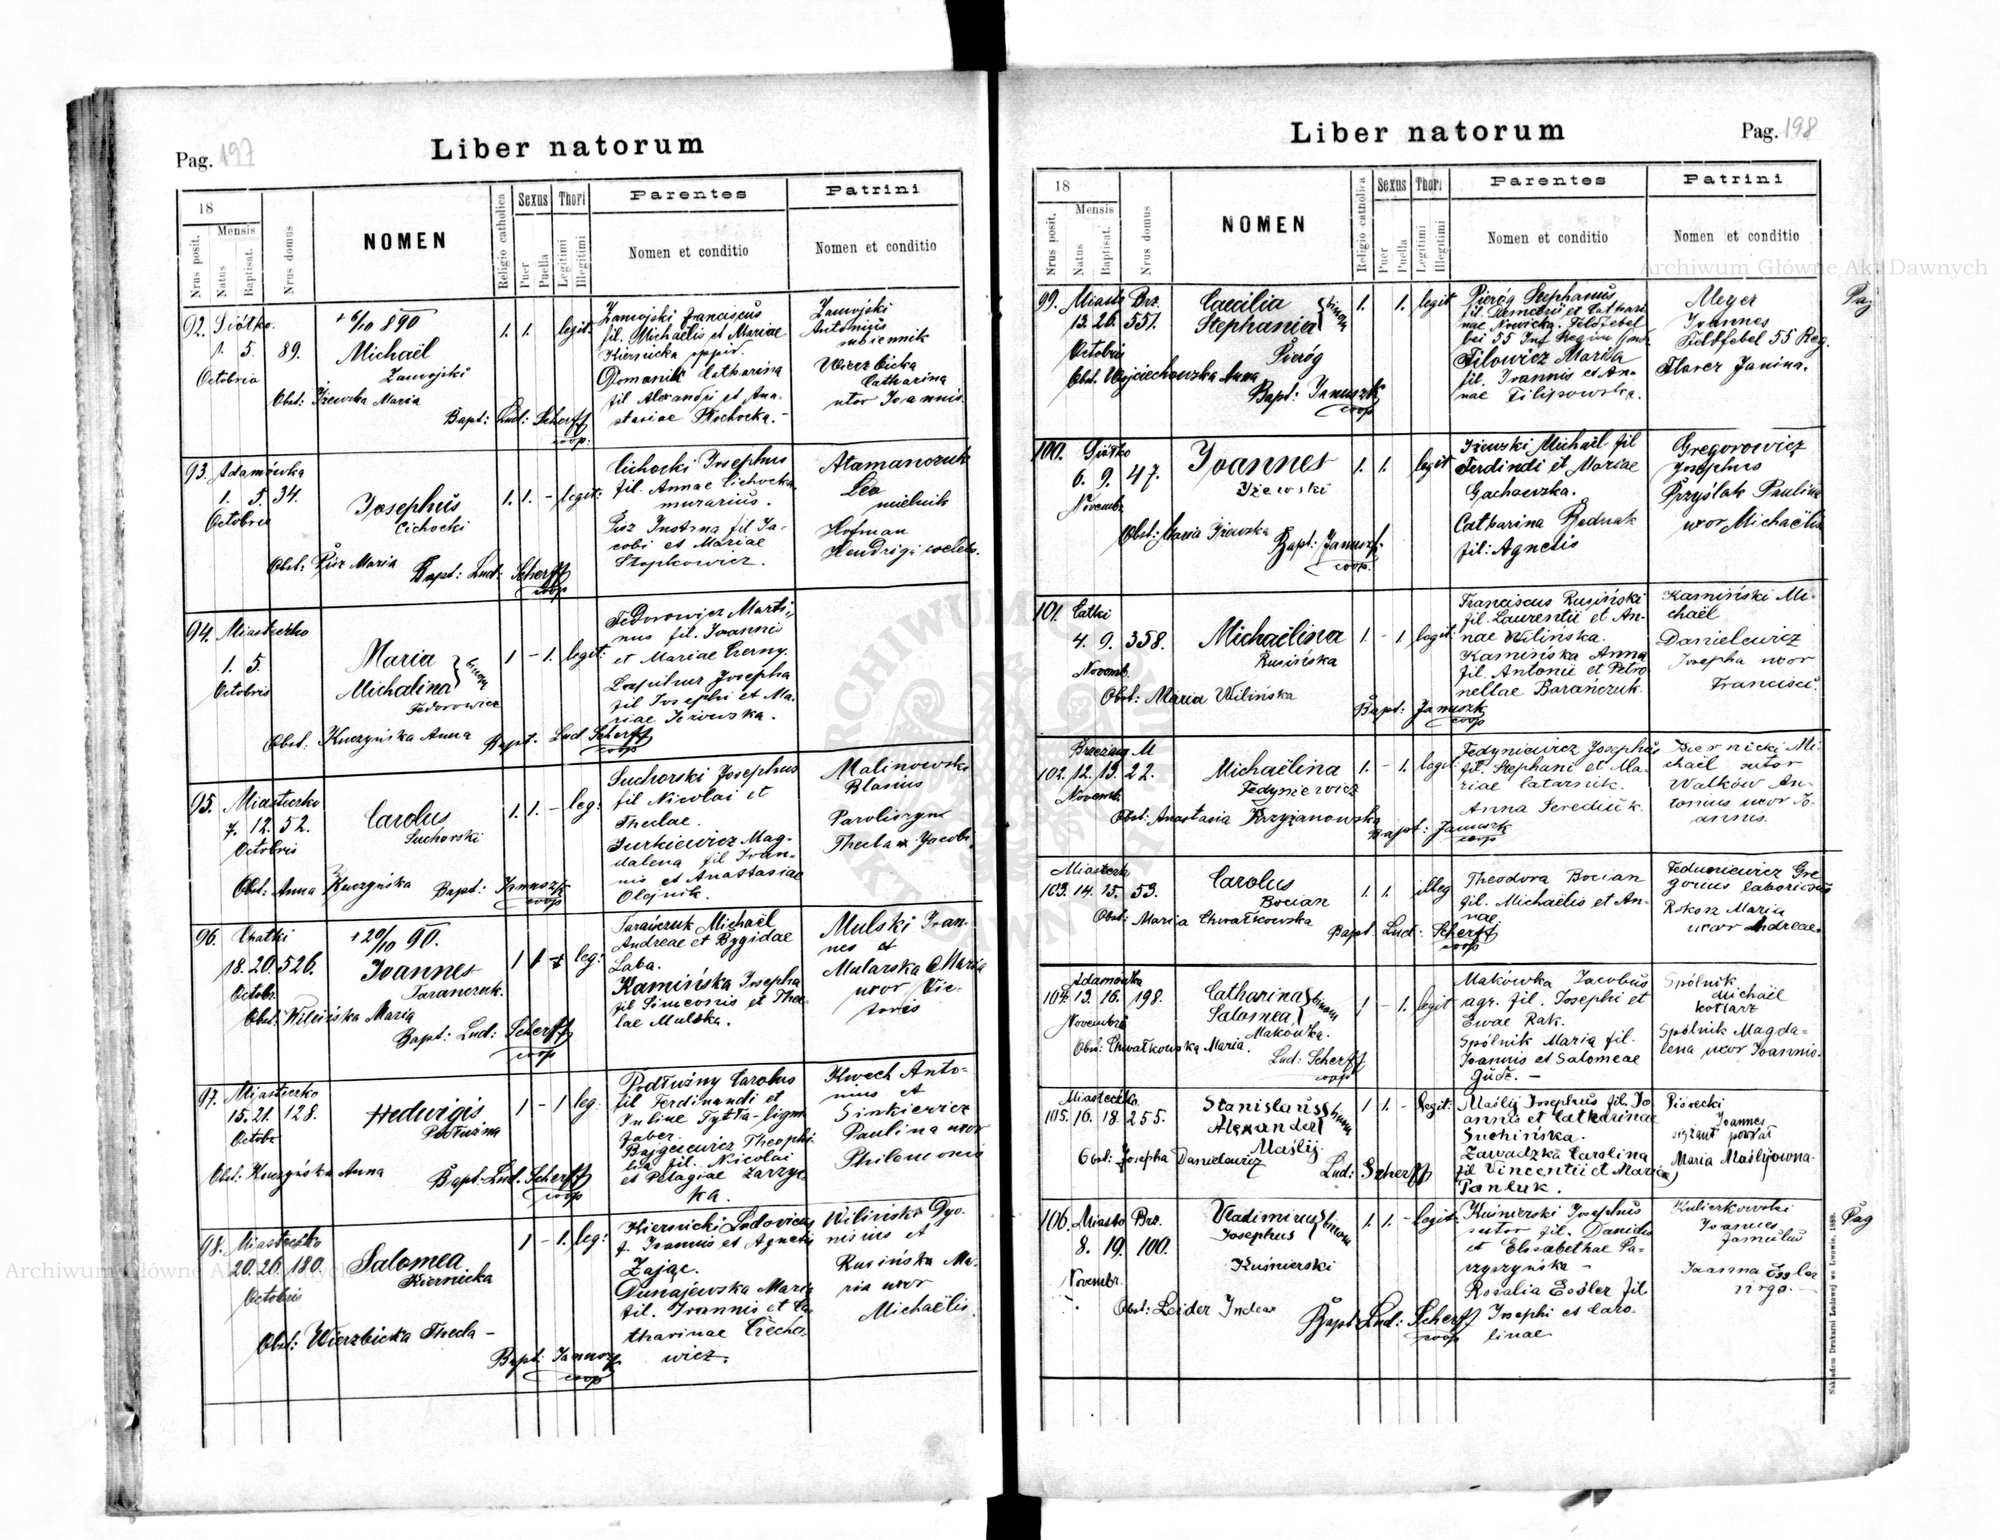 Liber natorum
Pag. 197
18
Mensis
Nrus posit.
Natus
Baptisat.
Nrus domus
NOMEN
Religio catholica
Sexus
Puer
Puella
Thori
Legitimi
Illegitimi
Parentes
Nomen et conditio
Patrini
Nomen et conditio
92.
1. 5. 89.
Octobris
+ 6/10 890
Michaël
Zamojski
Obst: Iżewska Maria
Bapt: Lud: Scherff
coop:
1. 1. legit:
Zamojski Franciscus
fil. Michaëlis et Mariae
Kiernicka oppid.
Catharina
fil Alexandri et Ana-
stasiae
Zamojski
Antonius
Wierzbicka
Catharina
uxor Ioannis.
93. Adamówka
1. 5. 34.
Octobris
Josephus
Cichocki
Obst: Maria
Bapt: Lud: Scherff
coop
1. 1. - legit:
Cichocki Josephus
fil. Annae Cichocka
murarius.
fil Ja-
cobi et Mariae
Stopkowicz.
Atamanczuk
Leo
mielnik
Hofman
94. Miasteczko
1. 5.
Octobris
Maria
Michalina
Fedorowicz
Obst: Kuczyńska Anna
Bapt. Lud Scherff
coop
1 - 1. legit:
Fedorowicz Marti-
nus fil. Ioannis
et Mariae Czerny.
Josepha
fil Josephi et Ma-
riae
95. Miasteczko
7. 12. 52.
Octobris
Carolus
Suchorski
Obst: Anna Kuczyńska Bapt: Januszk
coop
1. 1. - leg:
Suchorski Josephus
fil Nicolai et
Theclae.
Jurkiewicz Mag-
dalena fil Ioan-
nis et Anastasiae
Olejnik.
Malinowski
Blasius
Thecla
96.
18. 20. 526.
Octobr.
+ 20/10 90.
Ioannes
Taranczuk.
Obst: Wilińska Maria
Bapt: Lud: Scherff
coop
leg:
Tarańczuk Michaël
Andreae et Brygidae
Łaba.
Kamińska Josepha
fil Simeonis et The-
lae Mulska.
Mulski Ioan-
nes et
Mularska Maria
uxor Vic-
toris
97. Miasteczko
15. 21. 128.
Octobr
Hedwigis
Podłużna
Obst: Kuczyńska Anna
Bapt: Lud. Scherff
coop
1 - 1 leg.
Podłużny Carolus
fil Ferdinandi et
Juliae
faber.
Theophi-
la fil. Nicolai
et Pelagiae Zarzyc
ka.
Kwech Anto-
nius et
Sinkiewicz
Paulina uxor
Philomonis
98. Miasteczko
20. 26. 180.
Octobris
Salomea
Kiernicka
Obst: Wierzbicka Thecla -
Bapt: Januszk
coop
1 - 1. leg:
Kiernicki Ludovicus
f. Ioannis et Agnetis
Zając.
Dunajewska Maria
fil. Ioannis et Ca-
tharinae Ciecha-
wicz.
Wilińska Dyo-
nisius et
Rusińska Ma-
ria uxor
Michaëlis
Liber natorum
Pag. 198
18
Mensis
Nrus posit.
Natus
Baptisat.
Nrus domus
NOMEN
Religio catholica
Sexus
Puer
Puella
Thori
Legitimi
Illegitimi
Parentes
Nomen et conditio
Patrini
Nomen et conditio
99. Miasto Brz.
13. 26. 551.
Octobris
Caecilia
Stephania
Pieróg
Obst. Wojciechowska Anna
Bapt: Januszk
coop
1. 1. legit
Pieróg Stephanus
fil. Damasii et Cathari
nae Nowicka. Feldfebel
bei 55 Inf Regim
Filowicz Maria
fil. Ioannis et An-
nae Filipowska.
Meyer
Ioannes
Feldfebel 55 Reg.
Florer Janina.
100.
6. 9. 47.
Novembr
Ioannes
Iżewski
Obst: Maria Iżewska
Bapt: Januszk
coop.
1. 1. legit
Iżewski Michaël fil
Ferdindi et Mariae
Gachowska.
Catharina Bednak
fil: Agnetis
Gregorowicz
Josephus
Przyślak Paulina
uxor Michaëlis
101.
4. 9. 358.
Novemb.
Michaëlina
Rusińska
Obst: Maria Wilińska
Bapt: Januszk
coop
1. - 1. legit:
Franciscus Rusiński
fil. Laurentii et An-
nae Wilińska.
Kamińska Anna
fil. Antonii et Petro
nellae Baranczuk.
Kamiński Mi-
chaël
Danielewicz
Josepha uxor
Francisci.
102. 12. 13. 22.
Novemb.
Michaëlina
Fedyniewicz
Obst: Anastasia Krzyżanowska
Bapt: Januszk
coop
1. - 1. legit
Fedyniewicz Josephus
fil. Stephani et Ma-
riae latarnik.
Anna Serediuk.
Biernicki Mi-
chaël sutor
Walków An-
tonius uxor Jo-
annis.
103. 14. 15. 53.
Carolus
Bocian
Obst: Maria Chwałkowska
Bapt: Lud: Scherff
coop
1. 1. illeg
Theodora Bocian
fil. Michaëlis et An-
nae
Feduniewicz Gre
gorius laboriosus
Rokosz Maria
uxor Andreae
104. Adamówka
13. 16. 198.
Novembris
Catharina
Salomea
Makówka.
Obst: Chwałkowska Maria.
Lud: Scherff
coop
1 - 1. legit
Makówka Jacobus
agr. fil. Josephi et
Ewae Rak.
Spólnik Maria fil.
Ioannis et Salomeae
Gudz. -
Spólnik
Michaël
kotlarz
Spólnik Magda-
lena uxor Ioannis.
105. Miasteczko
16. 18. 255.
Stanislaus
Alexander
Maślij
Obst: Josepha Danielewicz
Lud: Scherff
1 1. - legit:
Maślij Josephus fil. Jo
annis et Catharinae
Suchińska.
Zawadzka Carolina
fil Vincentii et Maria
Panluk.
Piasecki
Ioannes
Maria Maślijowna.
106. Miasto Brz.
8. 19. 100.
Novembr.
Vladimirus
Josephus
Kuśnierski
Obst: Leider Indear
Bapt: Lud: Scherff
coop
1. 1. - legit:
Kuśnierski Josephus
sutor fil. Danielis
et Elisabethae Pa-
szyszyńska -
Rosalia Essler fil
Josephi et Caro-
linae
Kulierkowski
Ioannes
Joanna Essler
virgo.
Pag
Pag
Nakładem Drukarni Ludowej we Lwowie. 1889.
Archiwum Główne Akt Dawnych
Archiwum Główne Akt Dawnych
ARCHIWUM GŁÓWNE AKT DAWNYCH